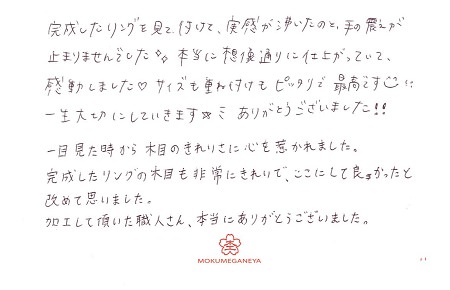 完成したリングを見て、付けて、実感が沸いたのと、手の震えが
止まりませんでした✨ 本当に想像通りに仕上がっていて、
感動しました♡ サイズも重ね付けもピッタリで最高です☺!!
一生大切にしていきます☆ミ ありがとうございました!!
一目見た時から木目のきれいさに心を惹かれました。
完成したリングの木目も非常にきれいで、ここにして良かったと
改めて思いました。
加工して頂いた職人さん、本当にありがとうございました。
MOKUMEGANEYA